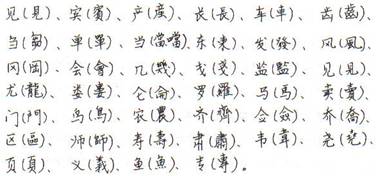 见(見)、宾(賓)、产(産)、长(長)、车(車)、齿(齒)、
刍(芻)、单(單)、当(當噹)、东(東)、发(發)、风(風)、
冈(岡)、会(會)、几(幾)、戋(戔)、监(監)、见(見)、
龙(龍)、娄(婁)、仑(侖)、罗(羅)、马(馬)、卖(賣)、
门(門)、鸟(鳥)、农(農)、齐(齊)、佥(僉)、乔(喬)、
区(區)、师(師)、寿(壽)、肃(肅)、韦(韋)、尧(堯)、
页(頁)、义(義)、鱼(魚)、专(專)。